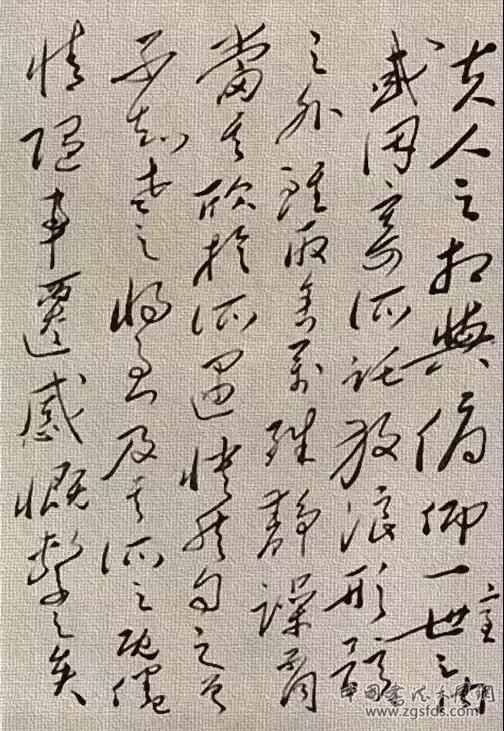 夫人之相與俯仰一世之間
或因寄所託放浪形骸
之外雖取舍萬殊靜躁不同
當其欣於所遇快然自足曾
不知老之將至及其所之既倦
情隨事遷感慨繫之矣
中国书法大师网
www.zgsfds.com